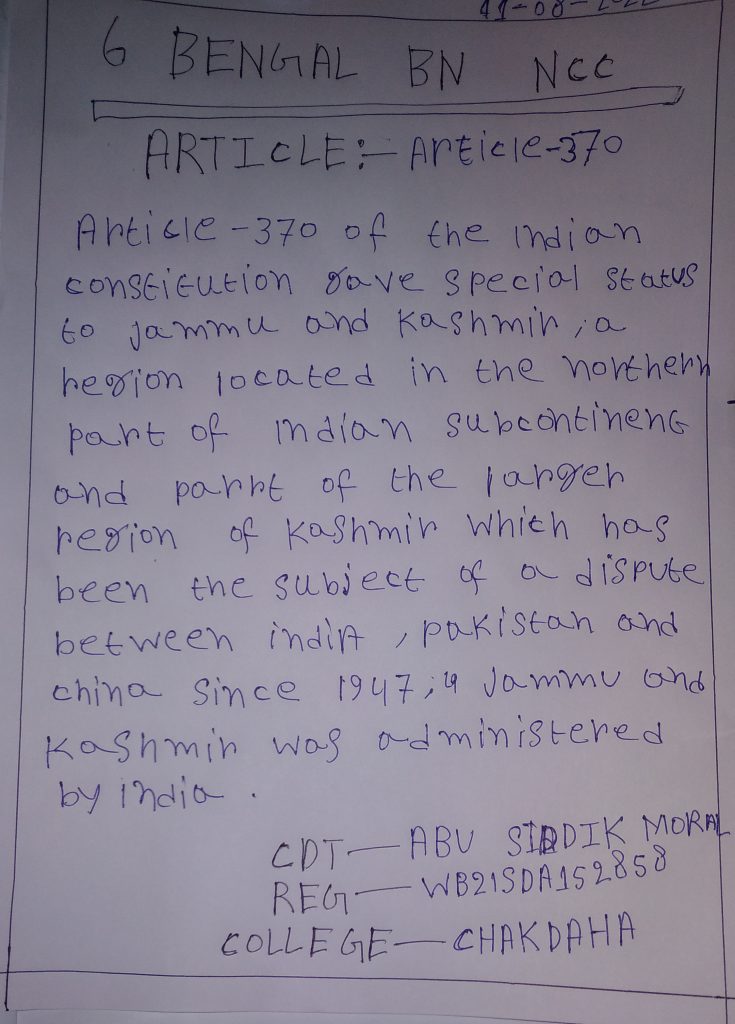 6 BENGAL BN NCC
ARTICLE:- Article-370
Article-370 of the indian
constitution gave special status
to jammu and Kashmir, a
region located in the northern
part of indian subcontinent
and parrt of the larger
region of Kashmir which has
been the subject of a dispute
between india, pakistan and
china since 1947, Jammu and
Kashmir was administered
by india.
CDT - ABU SIDDIK MORAL
REG - WB21SDA152858
COLLEGE - CHAKDAHA